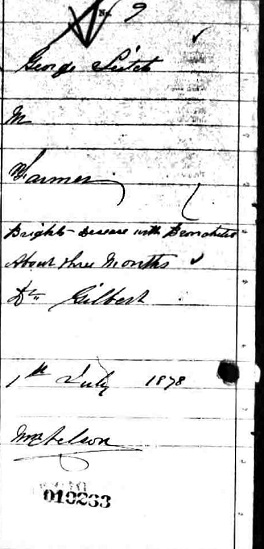 No. 9
George Leitch
M
Farmer
Brights Disease with Bronchitis
About three Months
Dr. Gilbert
1st July 1878
019233